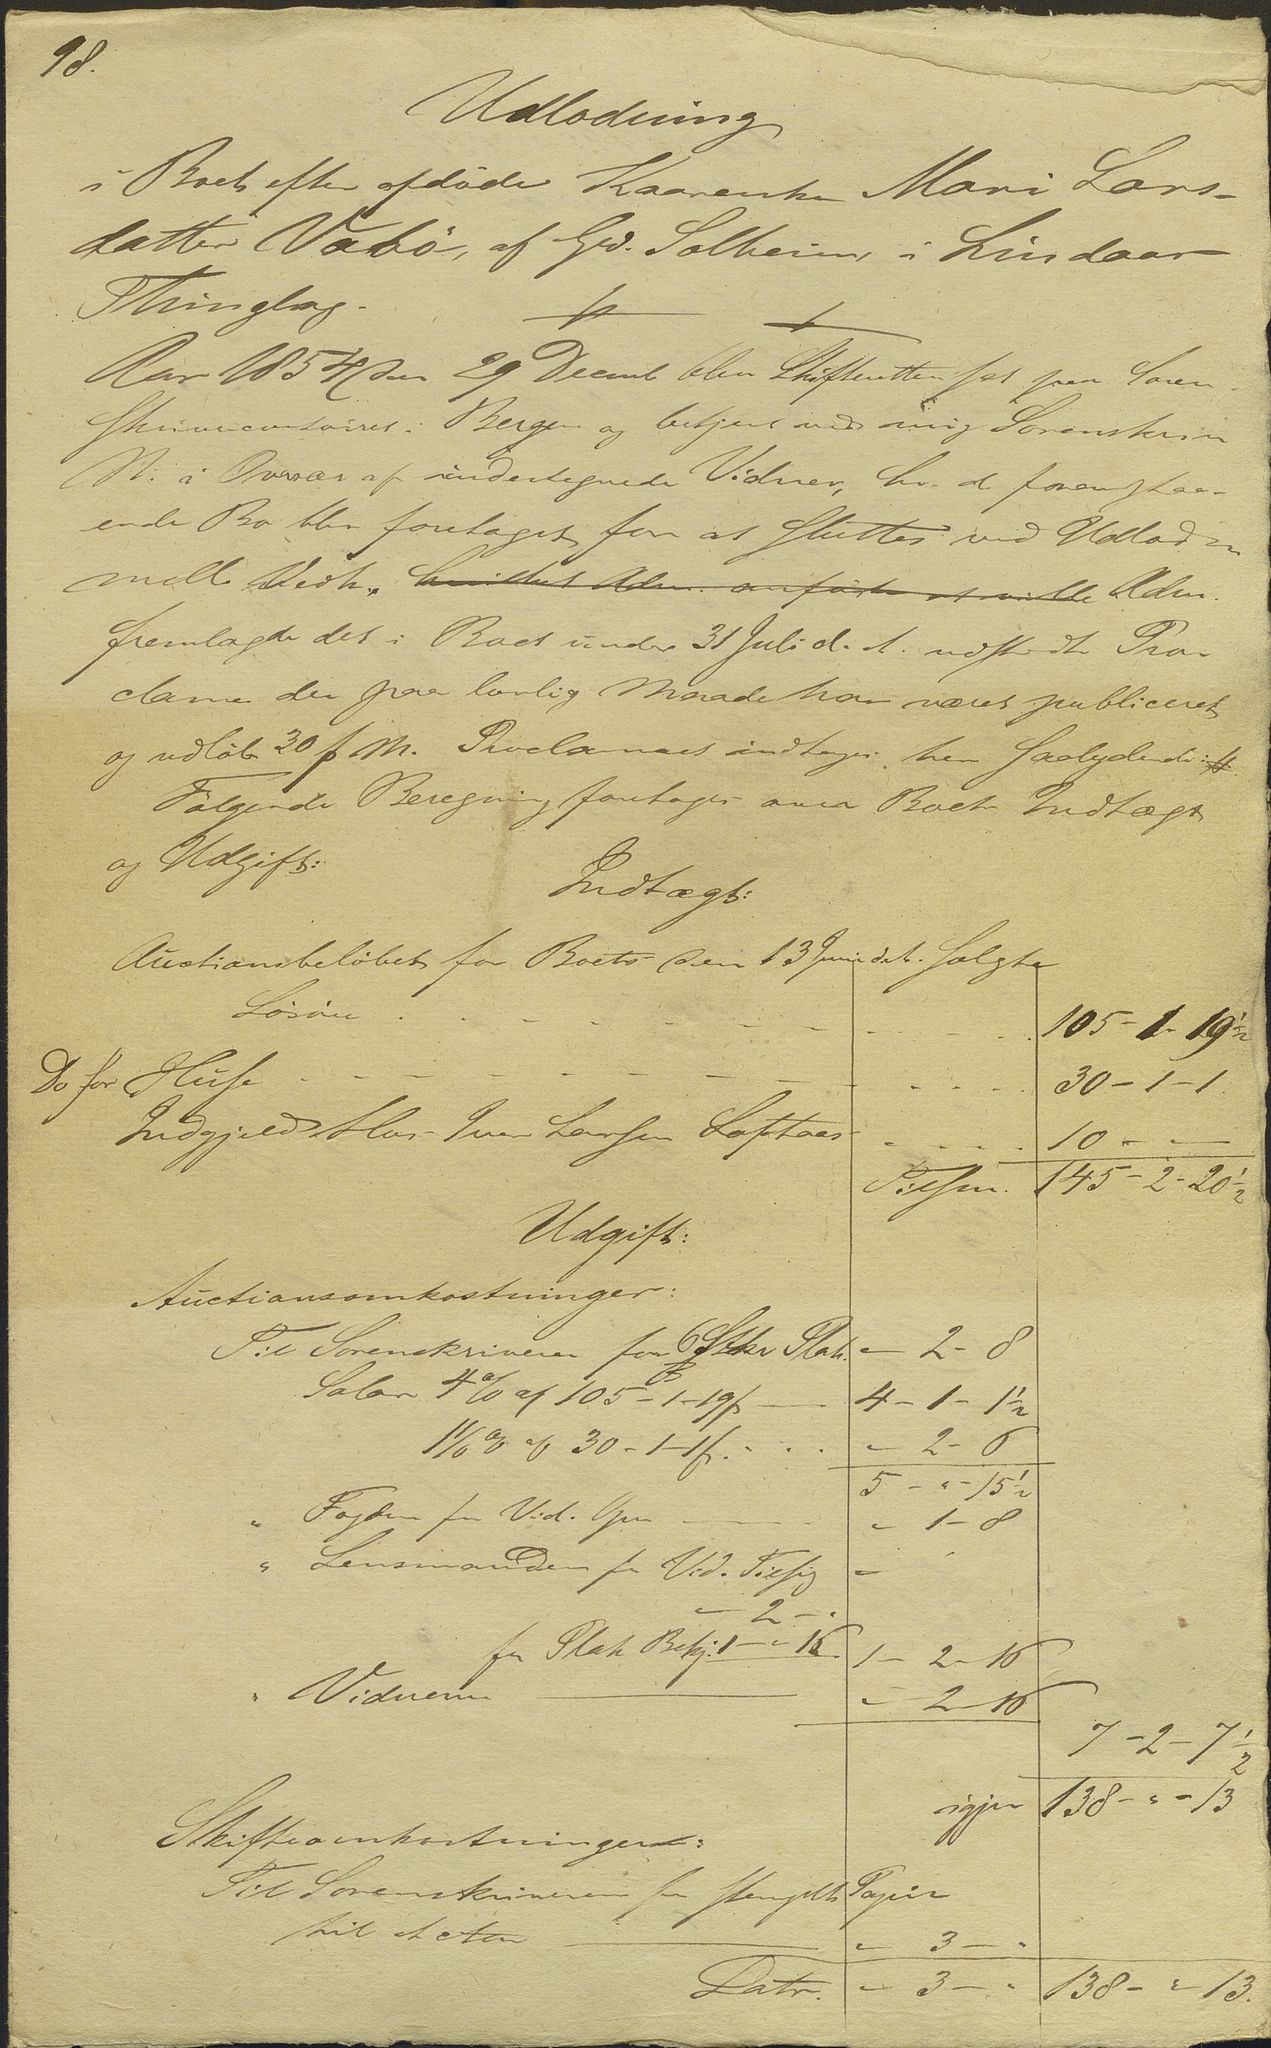 98.
Udlodning
i Boet efter afdøde Kaarenke Mari Lars-
datter Vabø, af Grd. Solheim i Lindaas
Thinglag.
Aar 1854 den 29 Decemb blev Skifteretten sat paa Soren-
skrivercontoiret i Bergen og betjent ved mig Sorenskriv
N. i Overvær af undertegnede Vidner, hv. d. foranstaa-
ende Bo blev foretaget for at sluttes ved Udlodn
mell. Vedk. hvilket Adm. anførte at ville Adm.
fremlagde det i Boet under 31 Juli d. A. udstedte Pro-
clama der paa lovlig Maade har været publiceret
og udløb 30 f. M. Proclamaet indtages her saalydende: #
Følgende Beregning foretages over Boets Indtægt
og Udgift:
Indtægt:
Auctionsbeløbet for Boets den 13 Juni d. A. solgte
Løsøre 105 - 1 - 19½
Do for Huse 30 - 1 - 1
Indgjeld hos Iver Larsen Loftaas 10 - " -
Tilsm. 145 - 2 - 20½
Udgift:
Auctionsomkostninger:
Til Sorenskriveren for 6 Stkr Plak. " - 2 - 8
Salar 4 % af 105 - 1 - 19 ß 4 - 1 - 1½
af 30 - 1 - 1 ß " - 2 - 6
5 - " - 15½
" Fogden for Vid. Opn " - 1 - 8
" Lensmanden for Vid. Tilsig
" - 2 - "
for Plak Bekj. 1 - " - 16 1 - 2 - 16
" Vidnerne " - 2 - 16
7 - 2 - 7½
igjen 138 - " - 13
Skifteomkostninger:
Til Sorenskriveren for stemplet Papir
til Acten " - 3 - "
Latr. " - 3 - " 138 - " - 13.